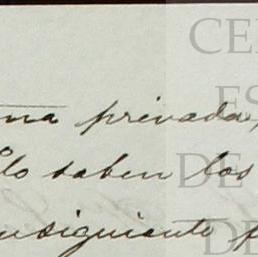 na privada,
lo saben los
nsiguiente
CE
ES
DE
DE